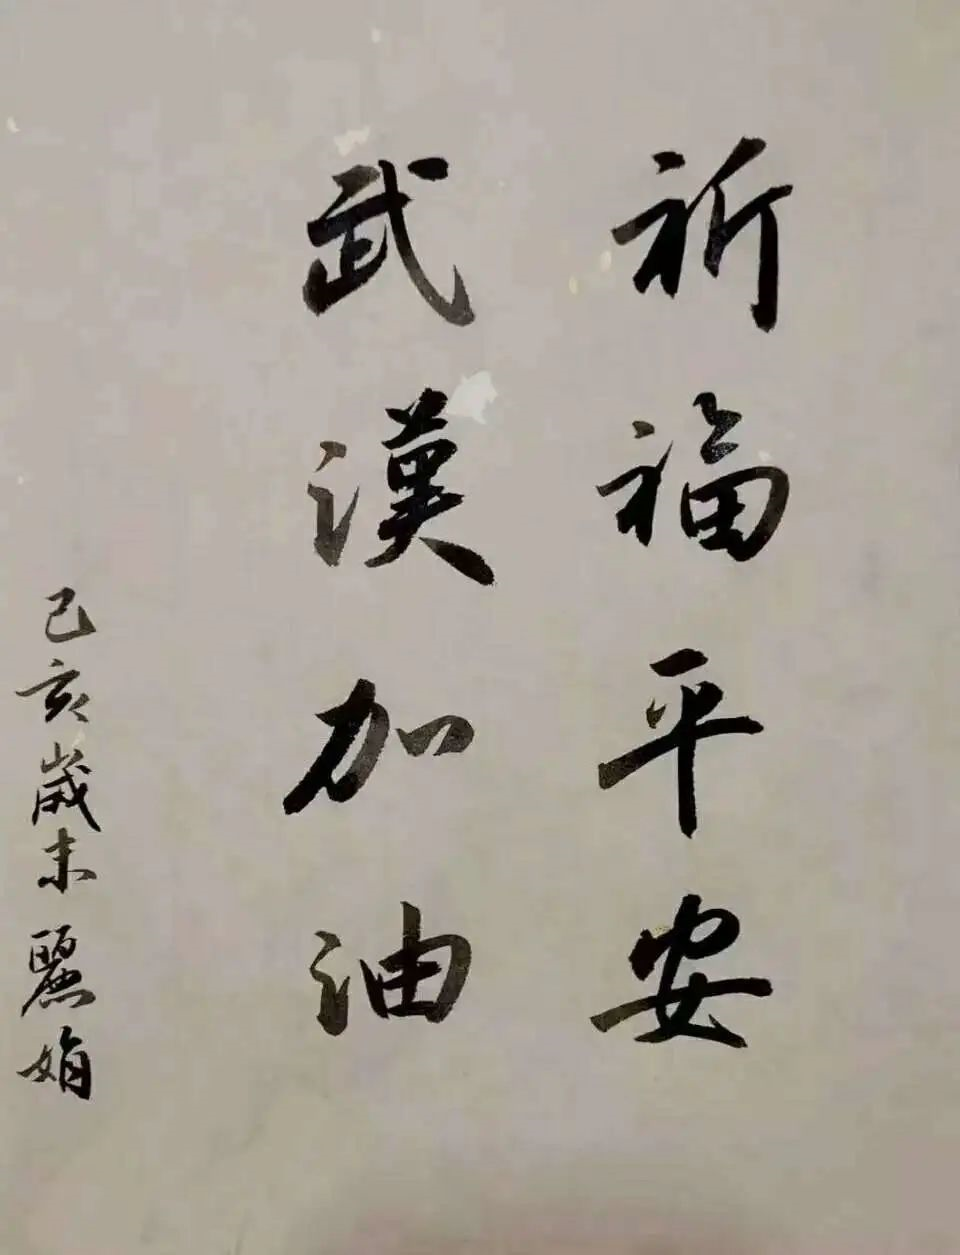 祈福平安
武漢加油
己亥歲末麗娟